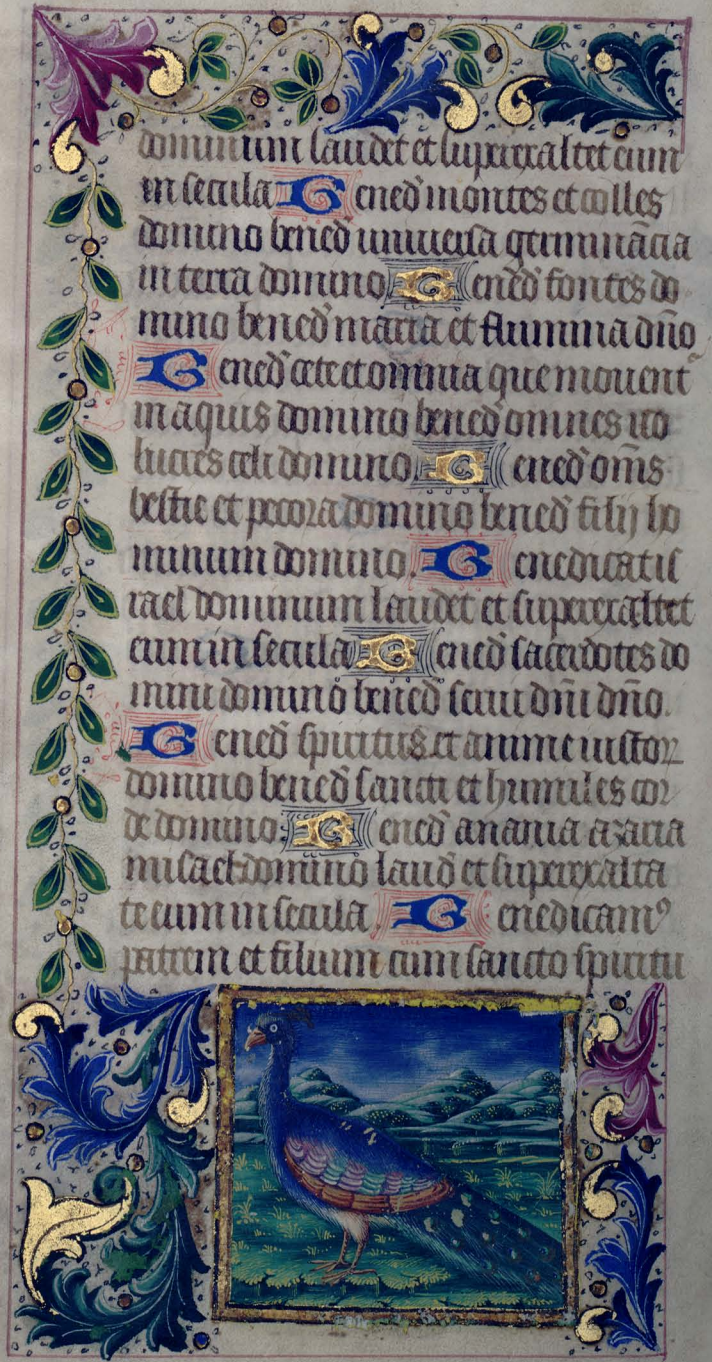 dominum laudet et superexaltet eum
in secula Bened̄ montes et colles
domino bened̄ universa germinācia
in terra domino Bened̄ fontes do
mino bened̄ maria et flumina dn̄o
Bened̄ cete et omnia que mouent᷑
in aquis domino bened̄ omnes uo
lucres celi domino Bened̄ om̄s
bestie et pecora domino bened̄ filij ho
minum domino. Benedicat is
rael dominum laudet et superexaltet
eum in secula Bened̄ sacerdotes do
mini domino bened̄ serui dn̄i dn̄o.
Bened̄ spiritus et anime iustoꝝ
domino bened̄ sancti et humiles cor
de domino. Bened̄ anania azaria
misael domino laud̄ et superexalta
te eum in secula. Benedicamꝰ
patrem et filium cum sancto spiritu